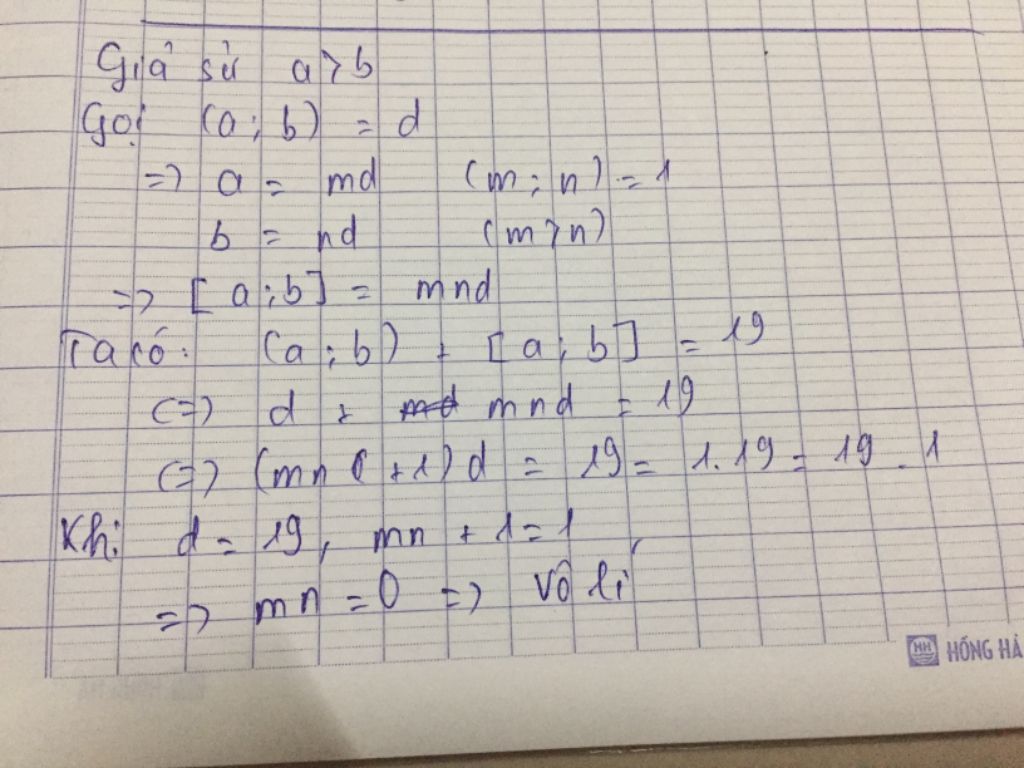 Giả sử a > b
Gọi (a ; b) = d
=> a = md (m ; n) = 1
b = nd (m > n)
=> [a ; b] = mnd
Ta có: (a ; b) + [a ; b] = 19
<=> d + mnd = 19
<=> (mn + 1) d = 19 = 1.19 = 19.1
Khi d = 19, mn + 1 = 1
=> mn = 0 => Vô lí
HH HỒNG HÀ